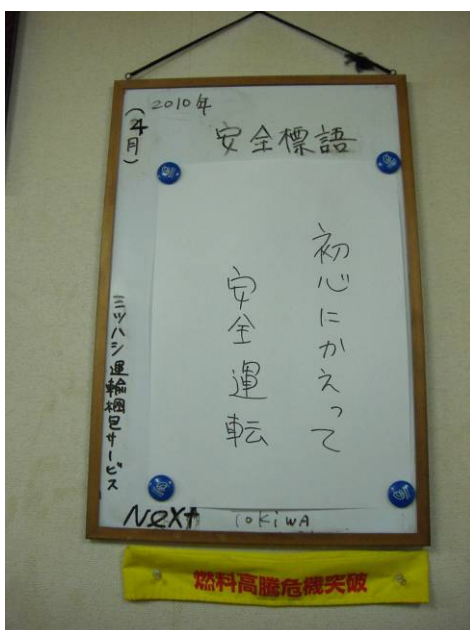 2010年
(4月)
安全標語
初心にかえって
安全運転
ミツハシ運輸梱包サービス
Next TOKIWA
燃料高騰危機突破